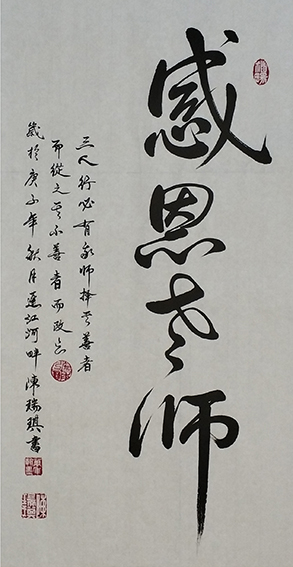 感恩老师
三人行必有我师择其善者
而從之其不善者而改之
歲於庚子年秋月蓮江河畔陳瑞琪書